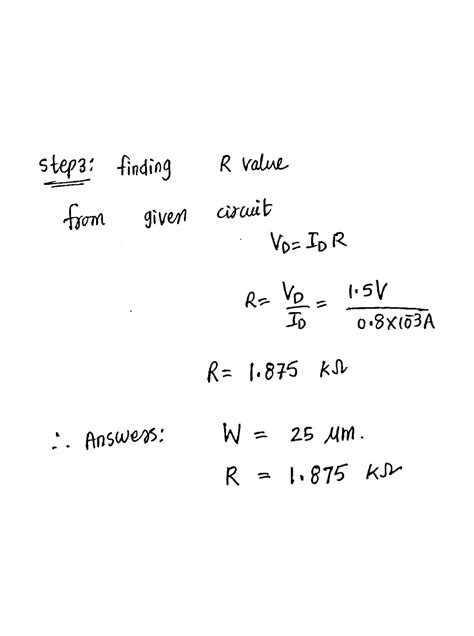 Step3: finding R value
from given circuit
V_D = I_D R
R = V_D / I_D = 1.5V / 0.8×10^-3 A
R = 1.875 kΩ
∴ Answers: W = 25 μm.
R = 1.875 kΩ